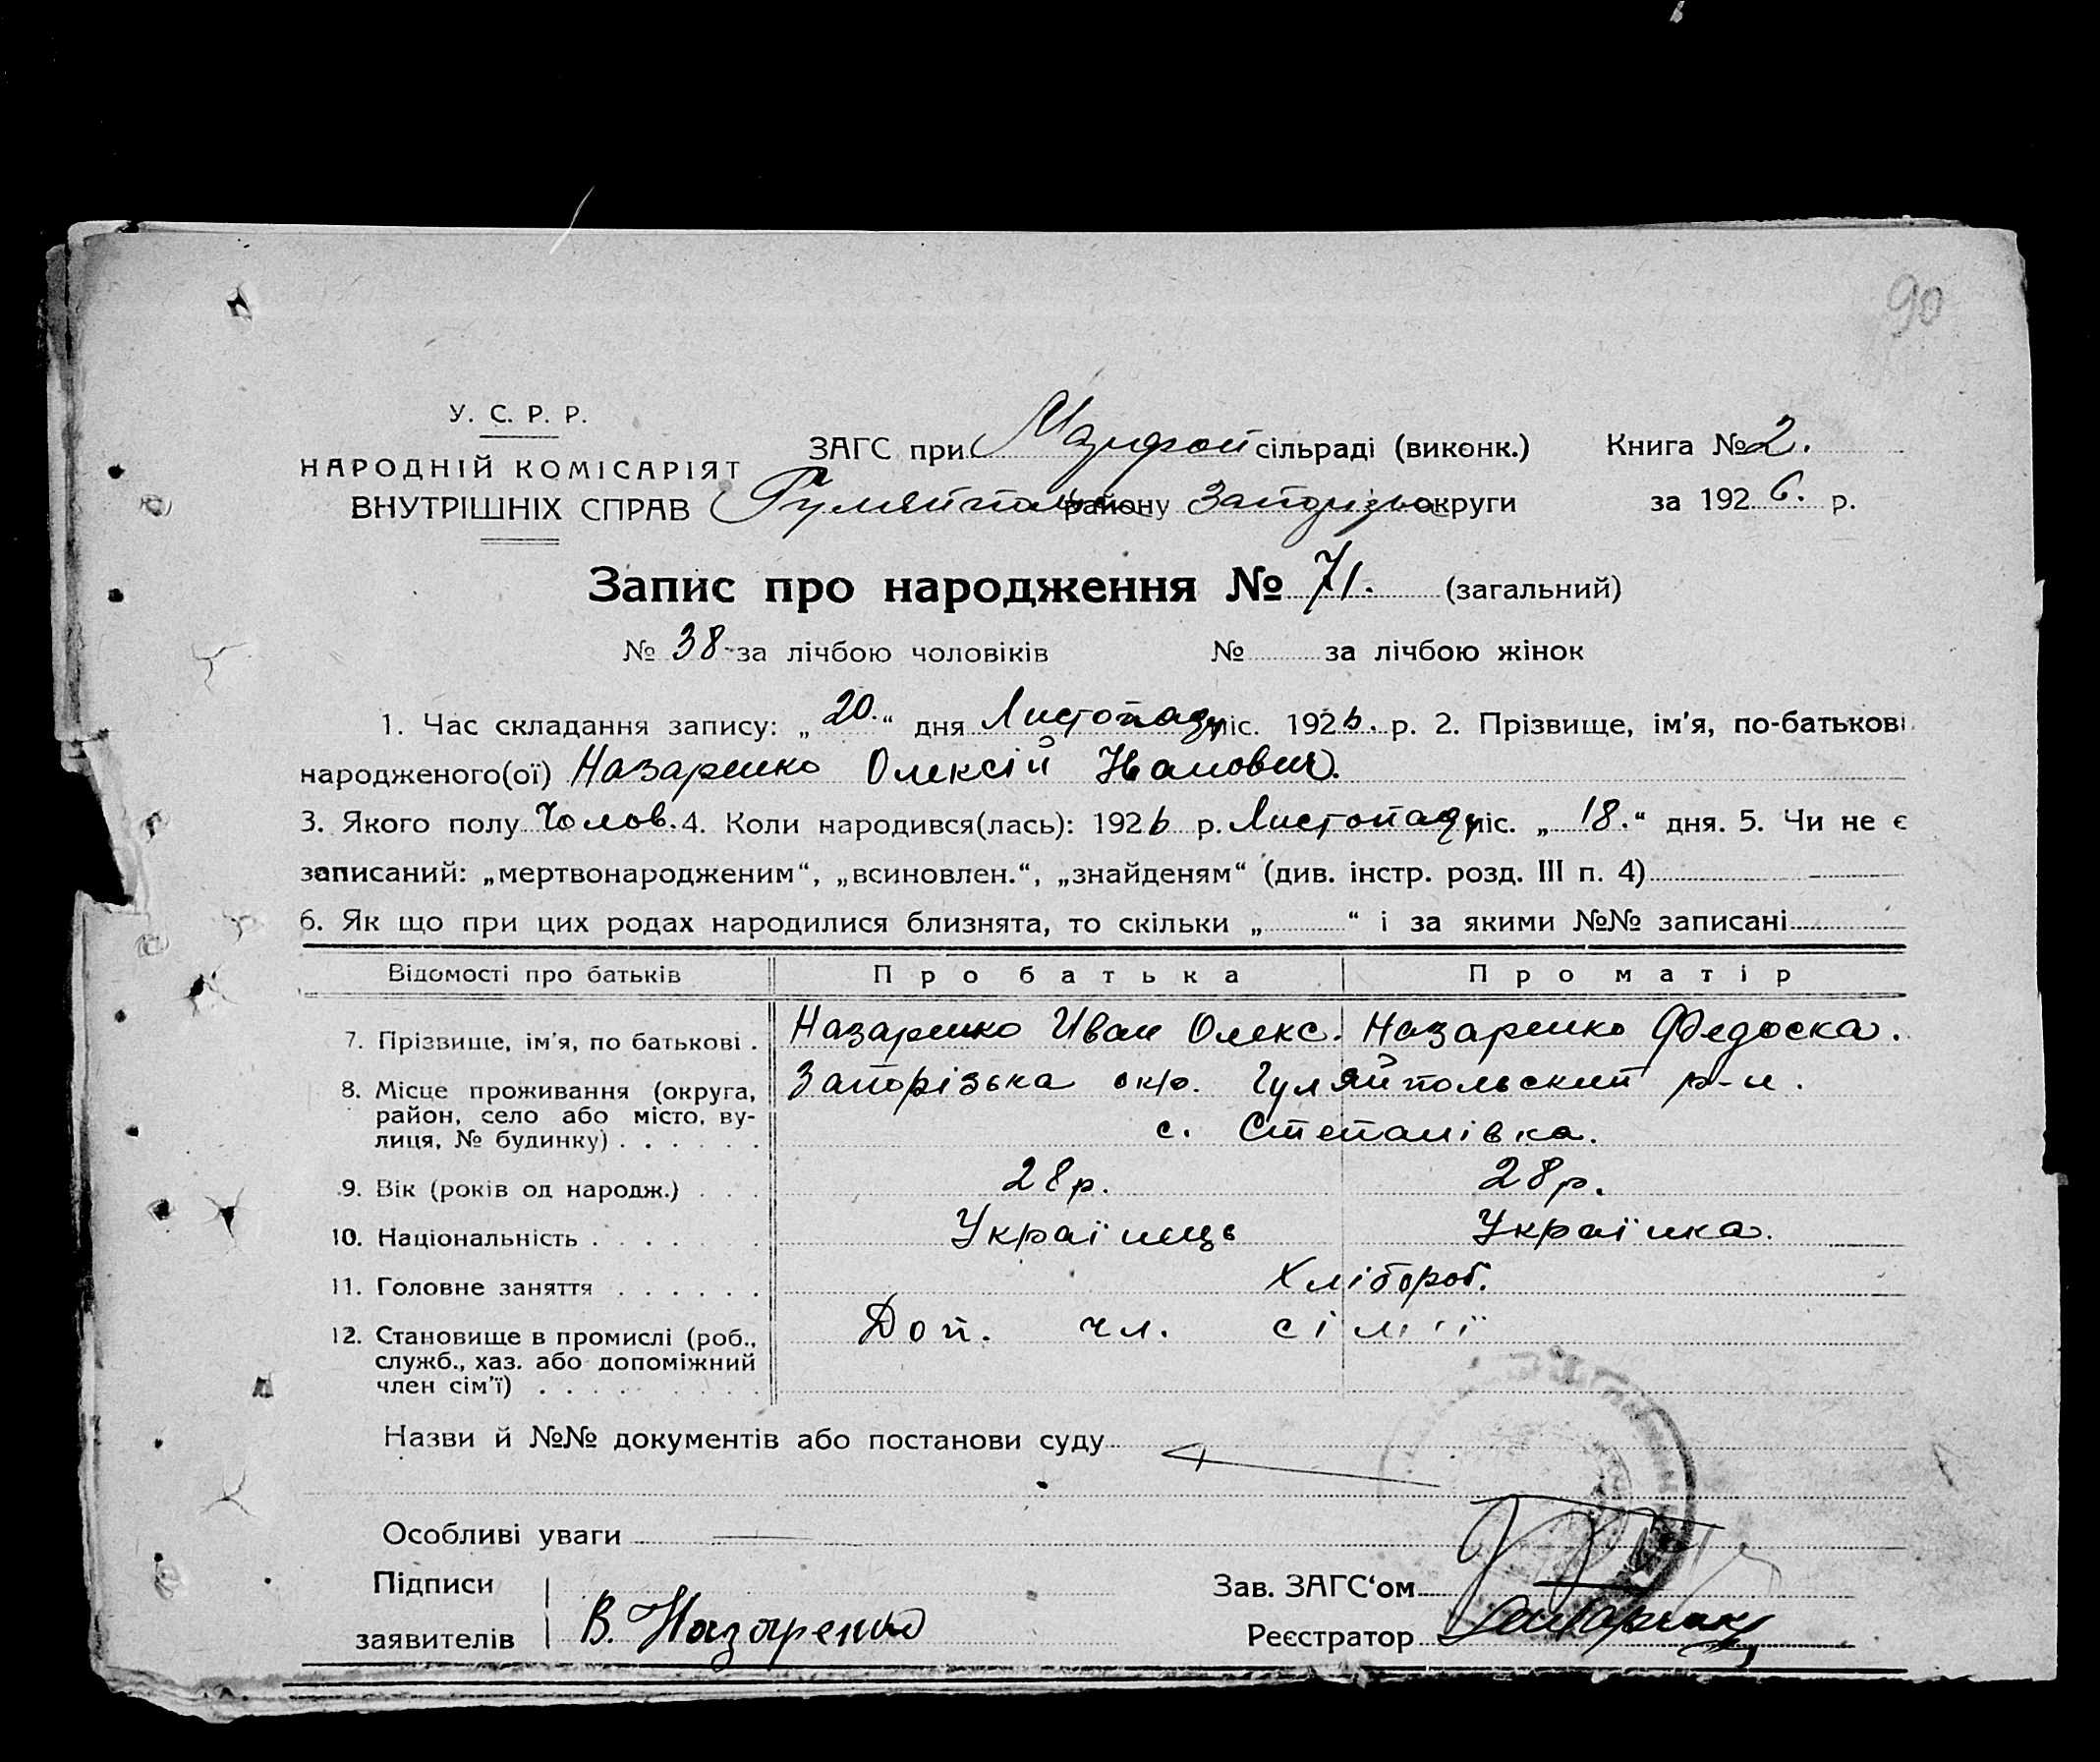 90
У. С. Р. Р.
НАРОДНІЙ КОМІСАРІЯТ
ВНУТРІШНІХ СПРАВ
ЗАГС при сільраді (виконк.) Книга № 2.
району Запорізько округи за 1926. р.
Запис про народження № 71. (загальний)
№ 38 за лічбою чоловіків № за лічбою жінок
1. Час складання запису: „20.“ дня Листопаду міс. 1926. р. 2. Прізвище, ім'я, по-батькові
народженого(ої) Назаренко Олексій Иванович.
3. Якого полу Чолов. 4. Коли народився(лась): 1926 р. Листопаду міс. „18.“ дня. 5. Чи не є
записаний: „мертвонародженим“, „всиновлен.“, „знайденям“ (див. інстр. розд. III п. 4)
6. Як що при цих родах народилися близнята, то скільки „ “ і за якими №№ записані
Відомості про батьків Про батька Про матір
7. Прізвище, ім'я, по батькові . Назаренко Иван Олекс. Назаренко Федоска.
8. Місце проживання (округа, Запорізька окр. Гуляйпольский р-н.
район, село або місто, ву-
лиця, № будинку) . . . . . . с. Степанівка.
9. Вік (років од народж.) . . . 28 р. 28 р.
10. Національність . . . . . . Українець Українка.
11. Головне заняття . . . . . . Хлібороб.
12. Становище в промислі (роб., Доп. чл. сімї
служб., хаз. або допоміжний
член сім'ї) . . . . . . . . .
Назви й №№ документів або постанови суду
Особливі уваги
Підписи
заявителів В. Назаренко
Зав. ЗАГС‘ом
Реєстратор